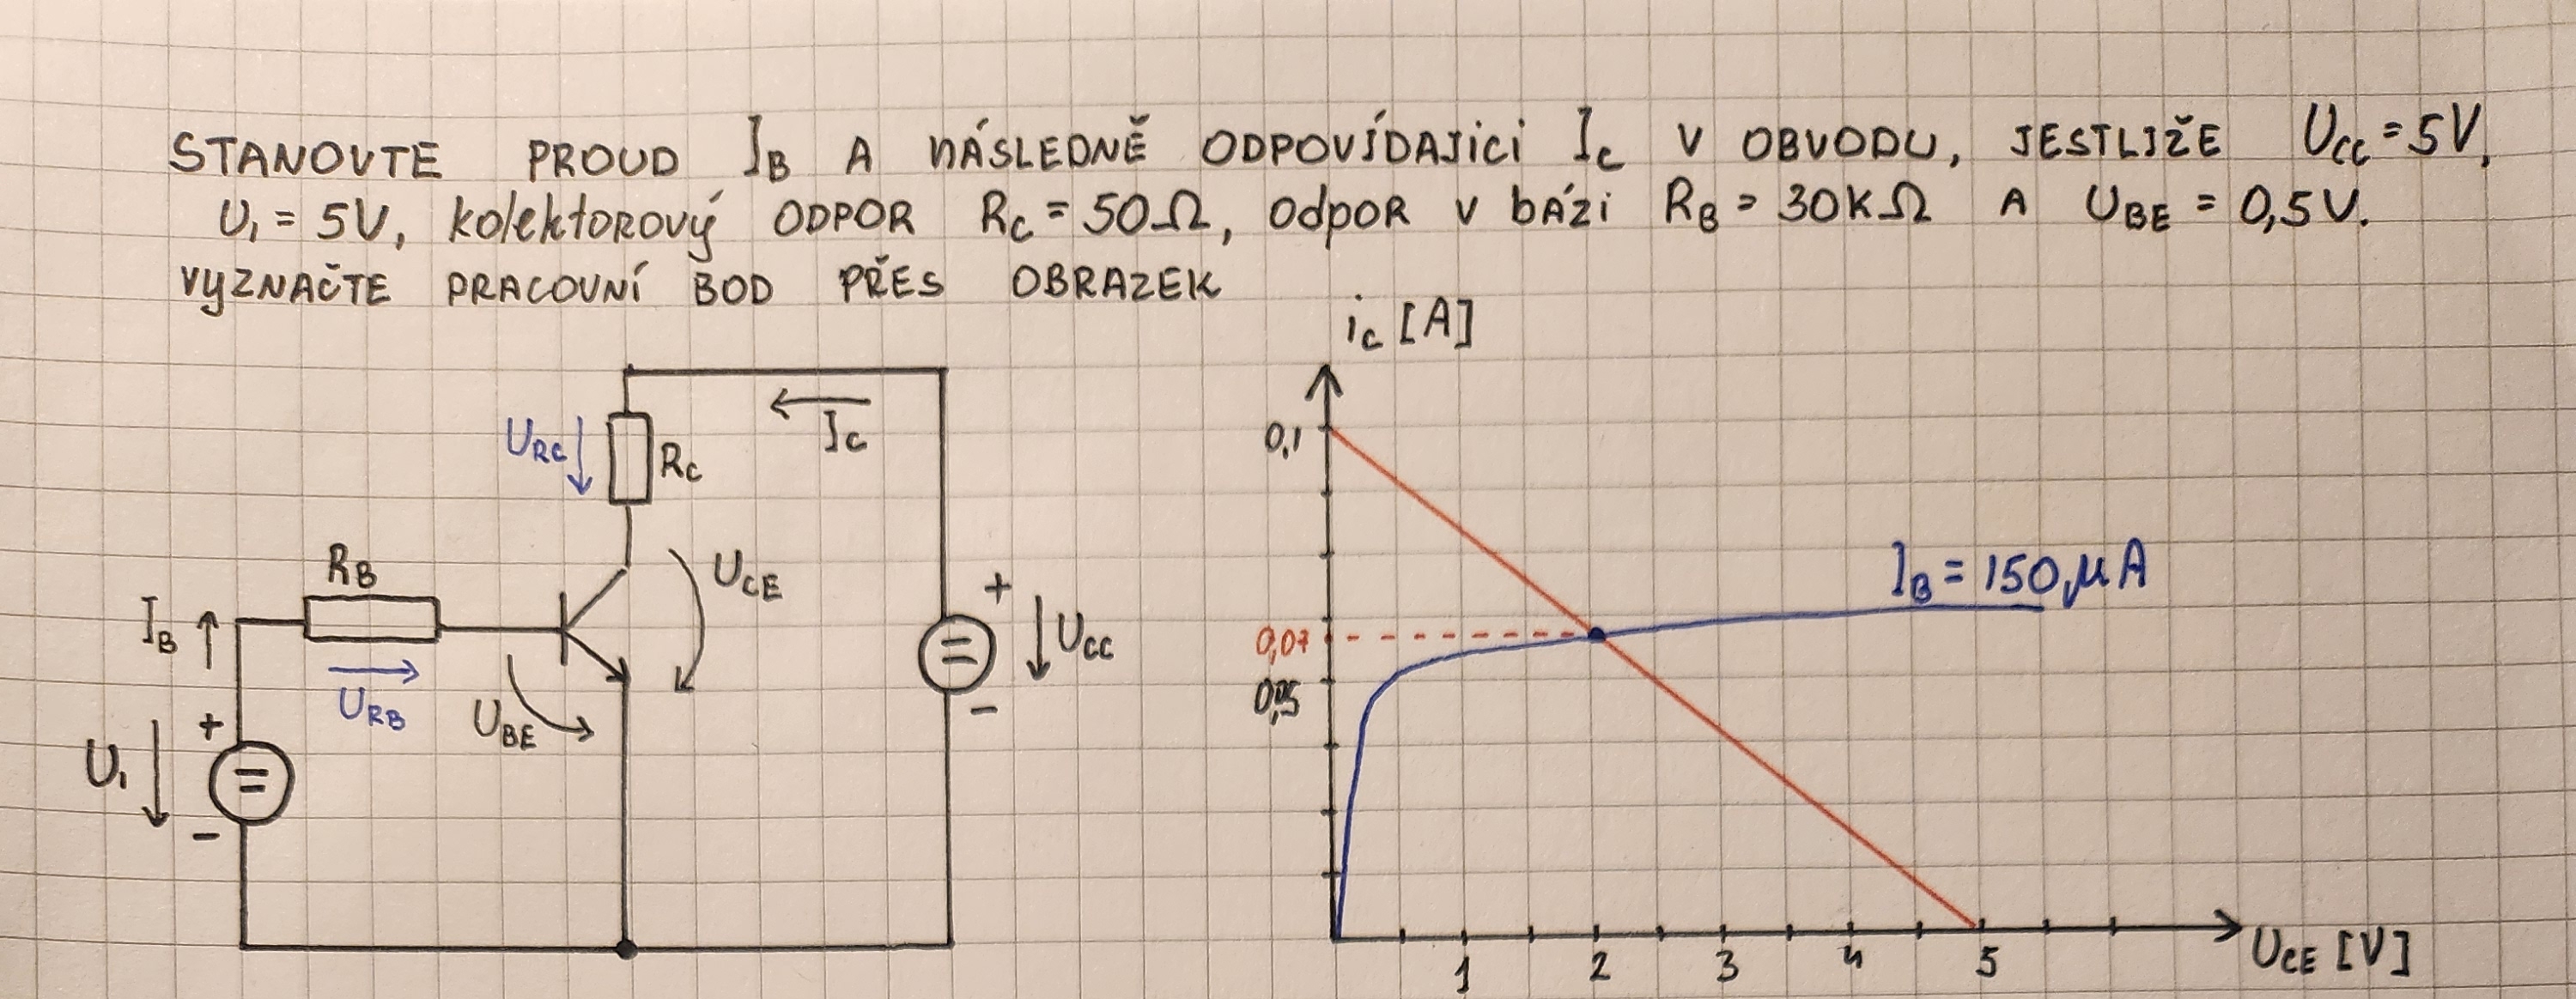 STANOVTE PROUD I_B A NÁSLEDNĚ ODPOVÍDAJíCí I_C V OBVODU, JESTLIŽE U_CC = 5V,
U_1 = 5V, kolektorový ODPOR R_C = 50Ω, odpoR v bázi R_B = 30KΩ A U_BE = 0,5V.
VYZNAČTE PRACOVNÍ BOD PŘES OBRAZEK
i_C [A]
I_C
U_RC
R_C
0,1
R_B
U_CE
I_B
+
U_CC
I_B = 150μA
0,07
U_RB
U_BE
0,05
-
+
U_1
-
1 2 3 4 5
U_CE [V]